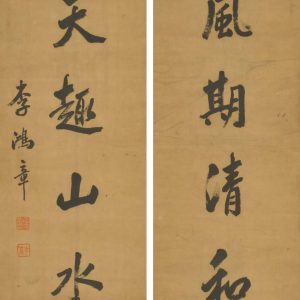 風期清和
天趣山水
李鴻章